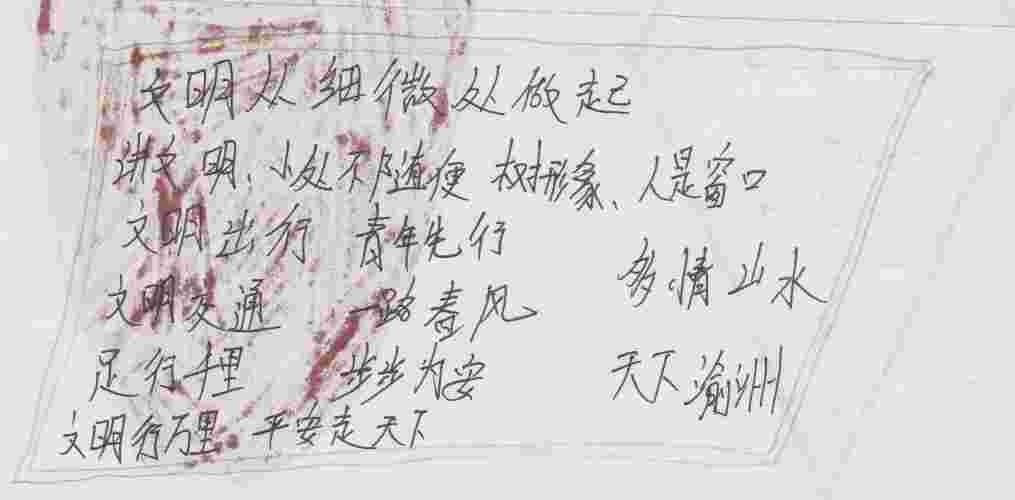 文明从细微处做起
讲文明、小处不随便 树形象、人是窗口
文明出行 青年先行
文明交通 一路春风
多情山水
足行千里 步步为安
天下渝州
文明行万里 平安走天下